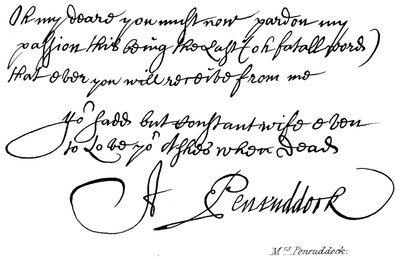 Oh my deare you must now pardon my
passion this being the Last (oh fatall word)
that ever you will receive from me
yor sadd but constant wife even
to Love yor Ashes when dead
A Penruddock
Mrs. Penruddock.